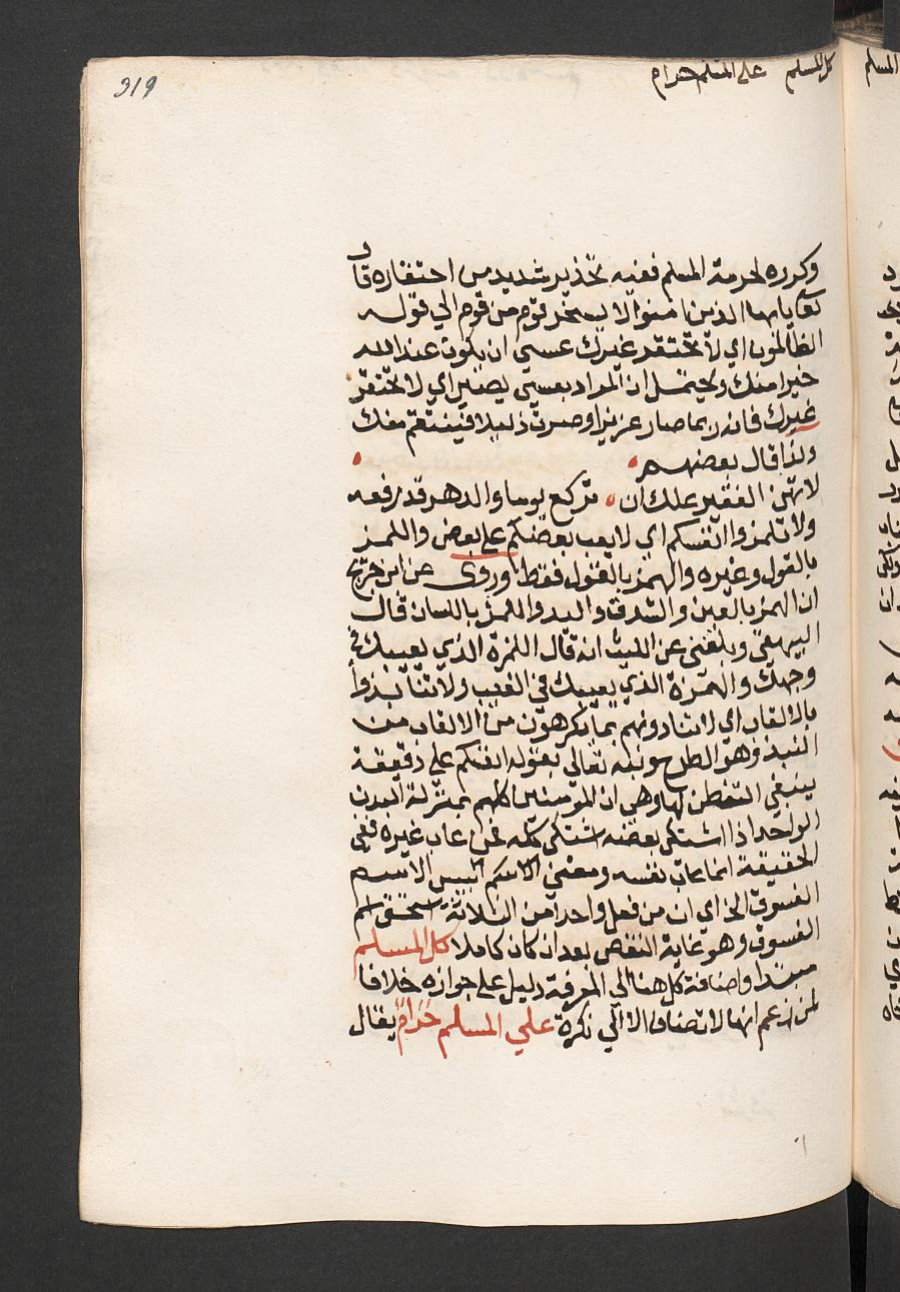 319
كل المسلم على المسلم حرام
وكرره لحرمة المسلم ففيه تحذير شديد من احتقاره قال
تعالى يايها الذين امنوا لا يسخر قوم من قوم الى قوله
الظالمون اي لا تحتقر غيرك عسى ان يكون عند الله
خيرا منك ويحتمل ان المراد بعسى يصير اي لا تحتقر
غيرك فانه ربما صار عزيزا وصرت ذليلا فينتقم منك
ولذا قال بعضهم
لا تهن الفقير علك ان تركع يوما والدهر قد رفعه
ولا تلمزوا انفسكم اي لا يعب بعضكم على بعض واللمز
بالقول وغيره والهمز بالقول فقط وروى عن ابن جريج
ان الهمز بالعين والشدق واليد واللمز باللسان قال
البيهقي وبلغني عن الليث انه قال اللمزة الذي يعيبك في
وجهك والهمزة الذي يعيبك في الغيب ولا تنابذوا
بالالقاب اي لا تنادونهم بما يكرهون من الالقاب من
النبذ وهو الطرح ونبه تعالى بقوله انفسكم على دقيقة
ينبغي التفطن لها وهي ان المومنين كلهم بمنزلة البدن
الواحد اذا اشتكى بعضه اشتكى كله فمن عاب غيره ففي
الحقيقة انما عاب نفسه ومعنى الاسم بيس الاسم
الفسوق الخ اي ان من فعل واحدا من الثلاثة استحق اسم
الفسوق وهو غاية النقص بعد ان كان كاملا كل المسلم
مبتدا واضافة كل هنا الى المعرفة دليل على جوازه خلافا
لمن زعم انها لا تضاف الا الى نكرة على المسلم حرام يقال